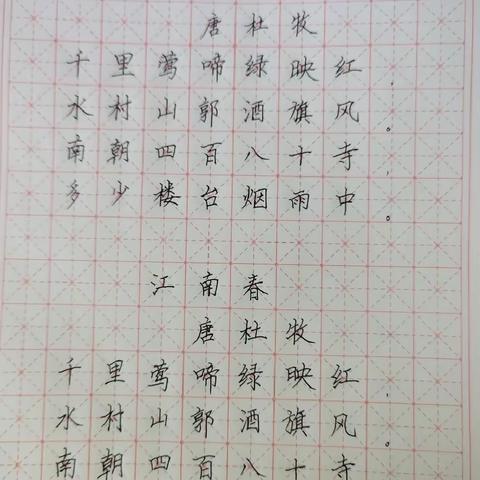 唐杜牧
千里莺啼绿映红，
水村山郭酒旗风。
南朝四百八十寺，
多少楼台烟雨中。
江南春
唐杜牧
千里莺啼绿映红，
水村山郭酒旗风。
南朝四百八十寺